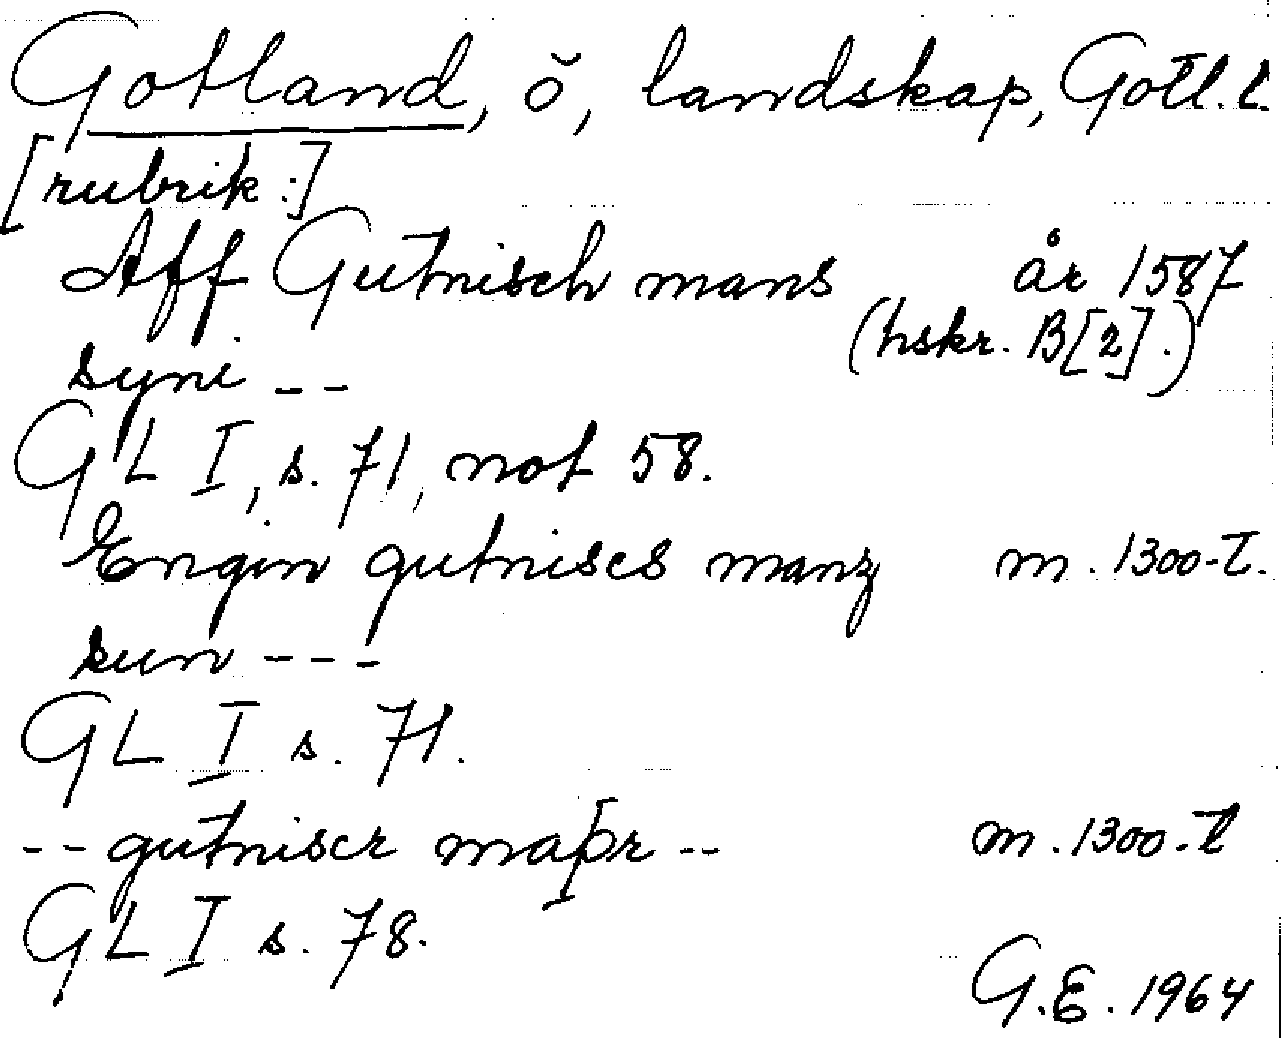 Gotland, ö, landskap, Gotl. l.
[rubrik:]
Aff Gutnisch mans år 1587
syni -- (hskr. B[2].)
GL I, s. 71, not 58.
Engin gutniscs manz m. 1300-t.
sun ---
GL I s. 71.
-- gutniscr maþr -- m. 1300-t
GL I s. 78.
G.E. 1964